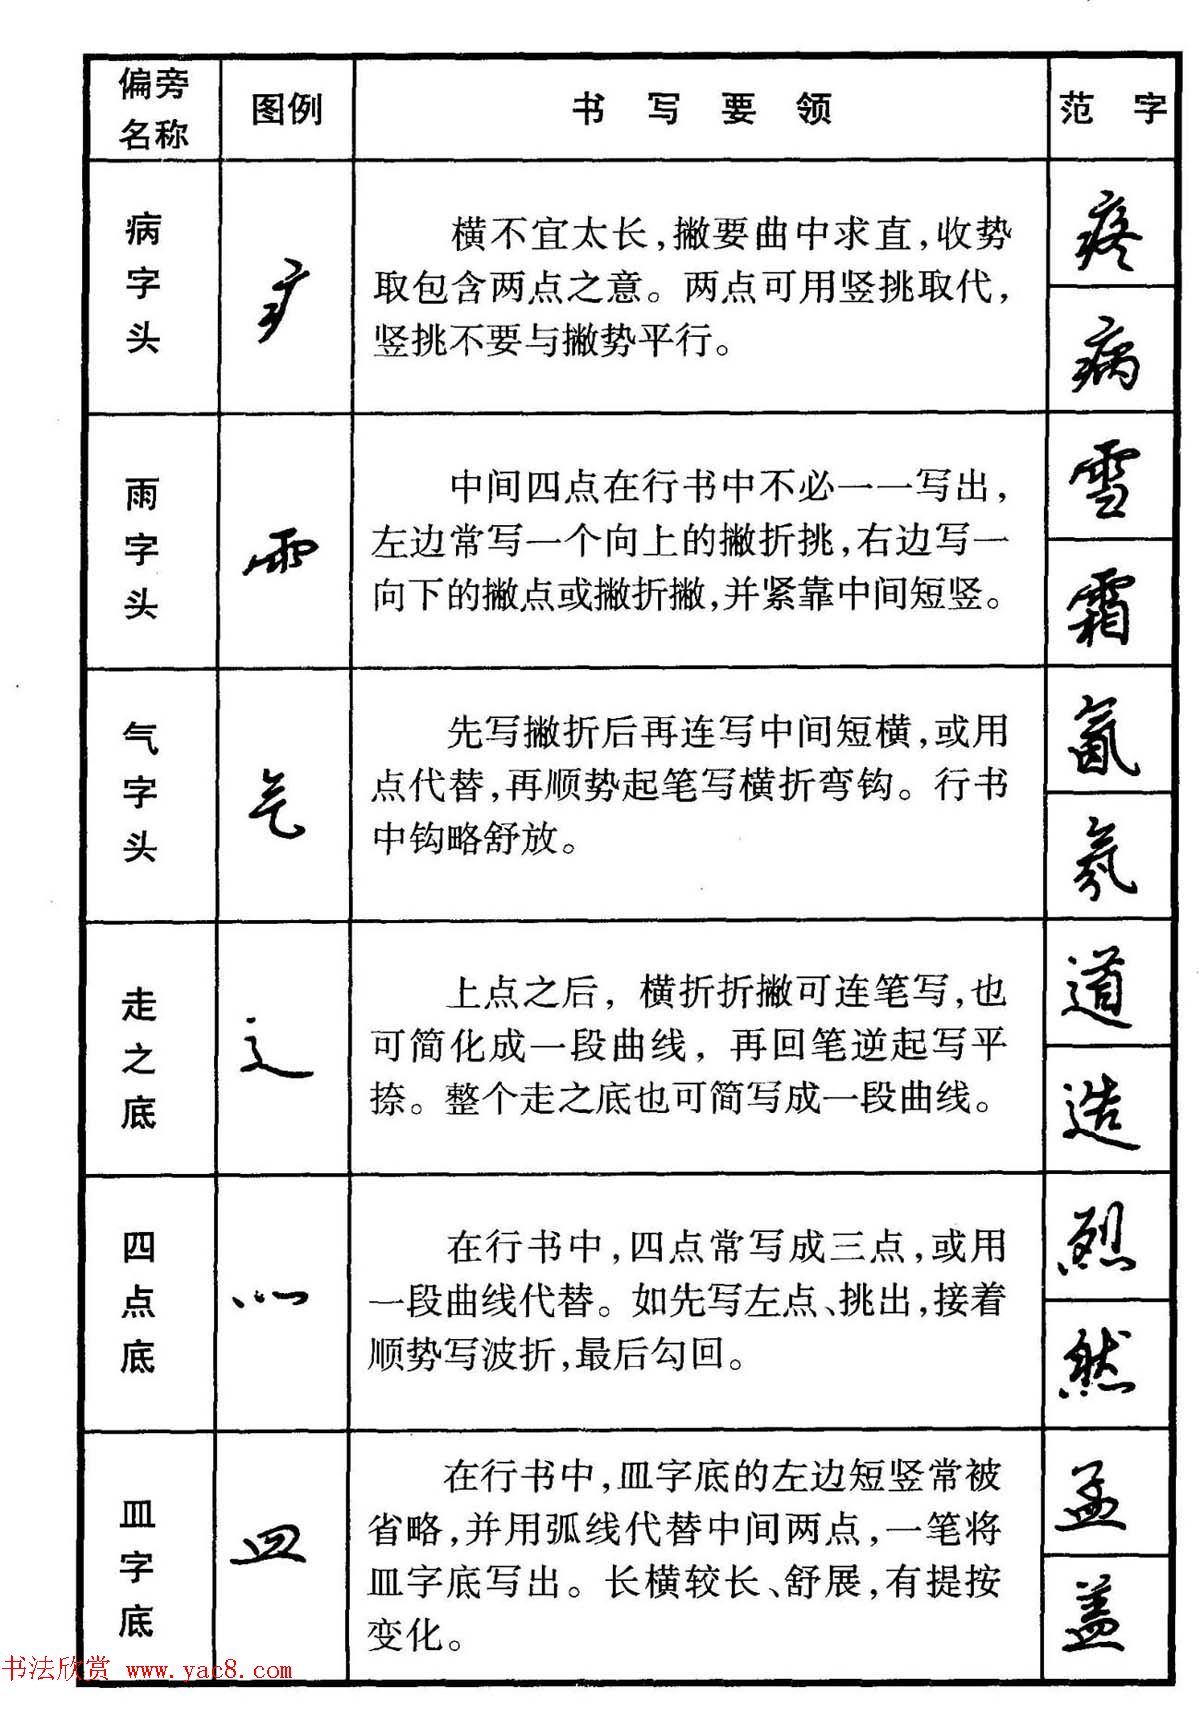 偏旁名称 图例 书写要领 范字
病字头 疒
横不宜太长，撇要曲中求直，收势
取包含两点之意。两点可用竖挑取代，
竖挑不要与撇势平行。
疼
病
雨字头 ⻗
中间四点在行书中不必一一写出，
左边常写一个向上的撇折挑，右边写一
向下的撇点或撇折撇，并紧靠中间短竖。
雪
霜
气字头 气
先写撇折后再连写中间短横，或用
点代替，再顺势起笔写横折弯钩。行书
中钩略舒放。
氤
氛
走之底 辶
上点之后，横折折撇可连笔写，也
可简化成一段曲线，再回笔逆起写平
捺。整个走之底也可简写成一段曲线。
道
造
四点底 灬
在行书中，四点常写成三点，或用
一段曲线代替。如先写左点、挑出，接着
顺势写波折，最后勾回。
烈
然
皿字底 皿
在行书中，皿字底的左边短竖常被
省略，并用弧线代替中间两点，一笔将
皿字底写出。长横较长、舒展，有提按
变化。
孟
盖
书法欣赏 www.yac8.com